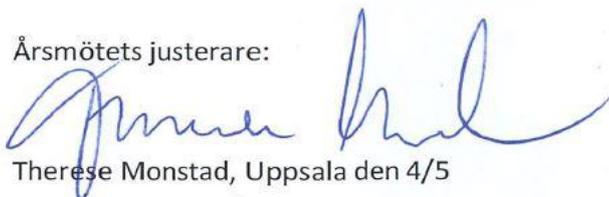 Årsmötets justerare:
Therese Monstad, Uppsala den 4/5